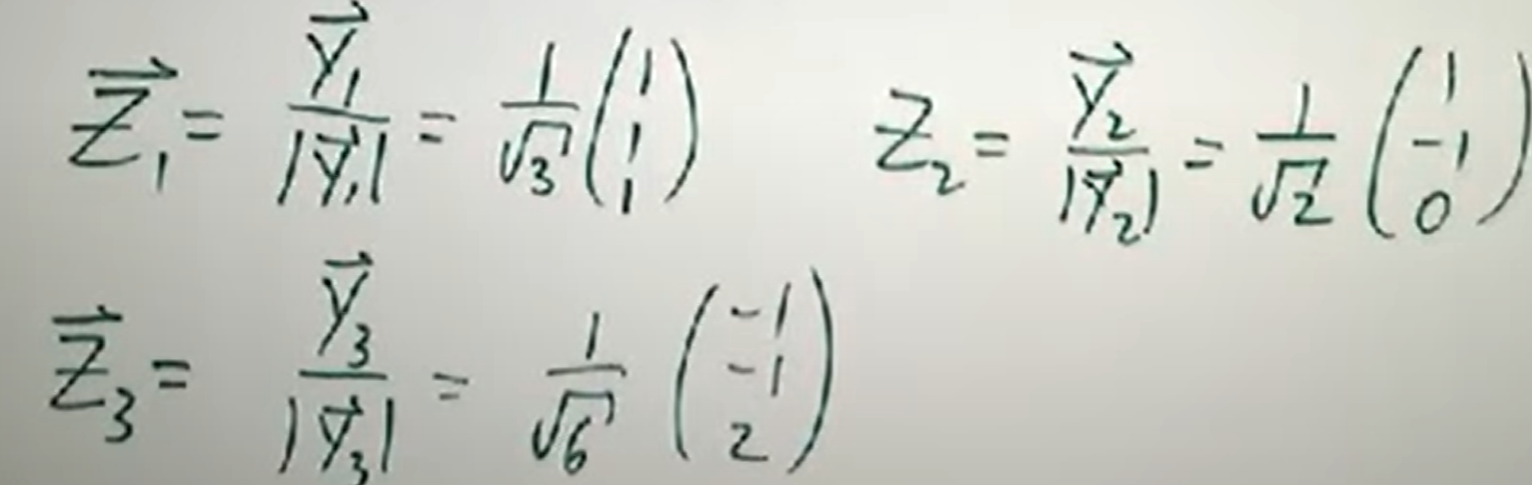 $\vec{Z}_1 = \frac{\vec{y}_1}{|\vec{y}_1|} = \frac{1}{\sqrt{3}} \begin{pmatrix} 1 \\ 1 \\ 1 \end{pmatrix}$ $Z_2 = \frac{\vec{y}_2}{|\vec{y}_2|} = \frac{1}{\sqrt{2}} \begin{pmatrix} 1 \\ -1 \\ 0 \end{pmatrix}$
$\vec{Z}_3 = \frac{\vec{y}_3}{|\vec{y}_3|} = \frac{1}{\sqrt{6}} \begin{pmatrix} -1 \\ -1 \\ 2 \end{pmatrix}$